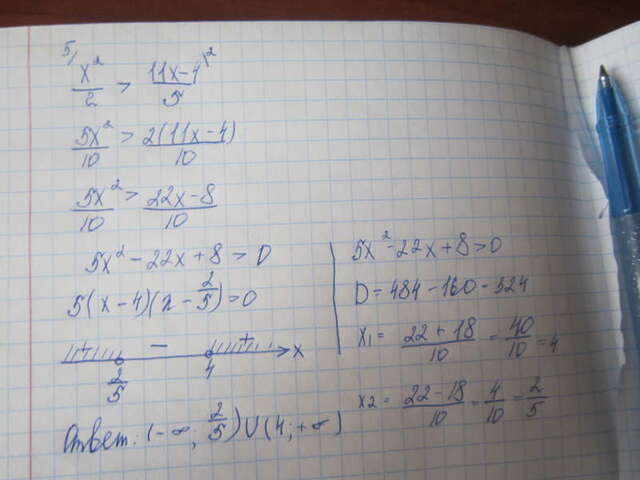 5)
x²/2 > (11x-4)/5 \²
5x²/10 > 2(11x-4)/10
5x²/10 > (22x-8)/10
5x²-22x+8>0
5(x-4)(x-2/5)=0
+ - + x
2/5 4
Ответ: (-∞; 2/5)∪(4;+∞)
5x²-22x+8>0
D=484-160-324
x1= (22+18)/10 = 40/10 = 4
x2= (22-18)/10 = 4/10 = 2/5